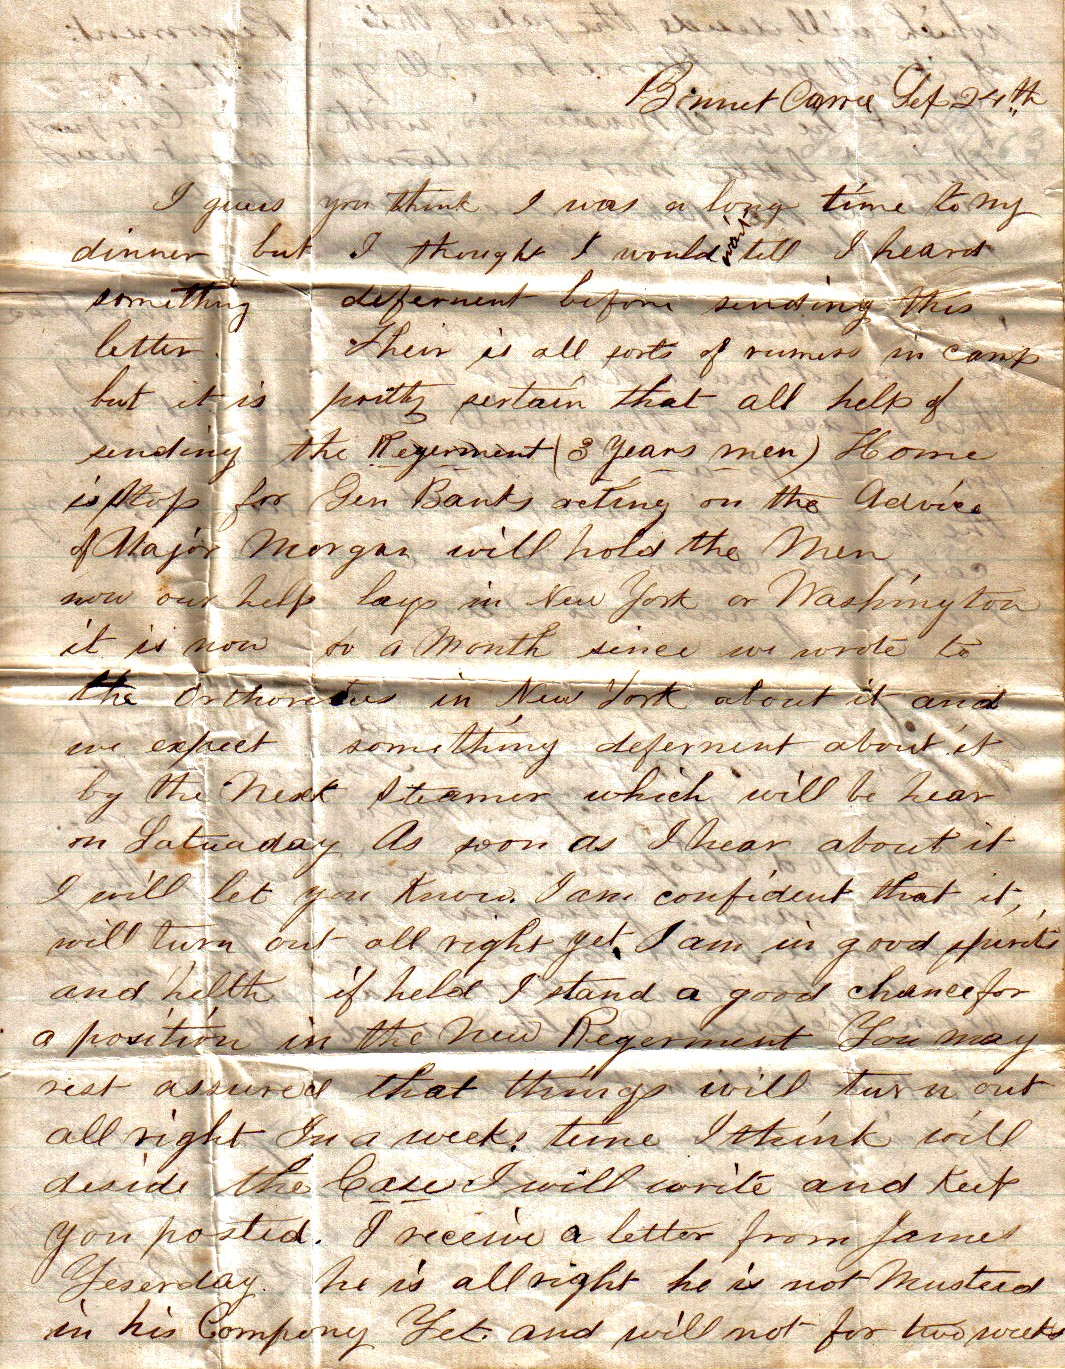 Bonnet Carre Sep 24th
I guess you think I was a long time to my
dinner but I thought I would wait till I heard
something defernent before sending this
letter. Their is all sorts of rumers in camp
but it is pritty sertain that all help of
sending the Regerment (3 Years men) Home
is stop for Gen Banks acting on the Advice
of Major Morgan will hold the Men
now our help lays in New York or Washington
it is now a Month since we wrote to
the Orthoreties in New York about it and
we expect something defernent about it
by the Next Steamer which will be hear
on Satuaday As soon as I hear about it
I will let you Know. I am confident that it
will turn out all right yet. I am in good spirits
and helth if held I stand a good chance for
a position in the New Regerment You may
rest assured that things will turn out
all right In a weeks time I think will
deside the Case I will write and Keep
you posted. I receive a letter from James
Yeserday. he is all right he is not Musterd
in his Company Yet. and will not for two weeks